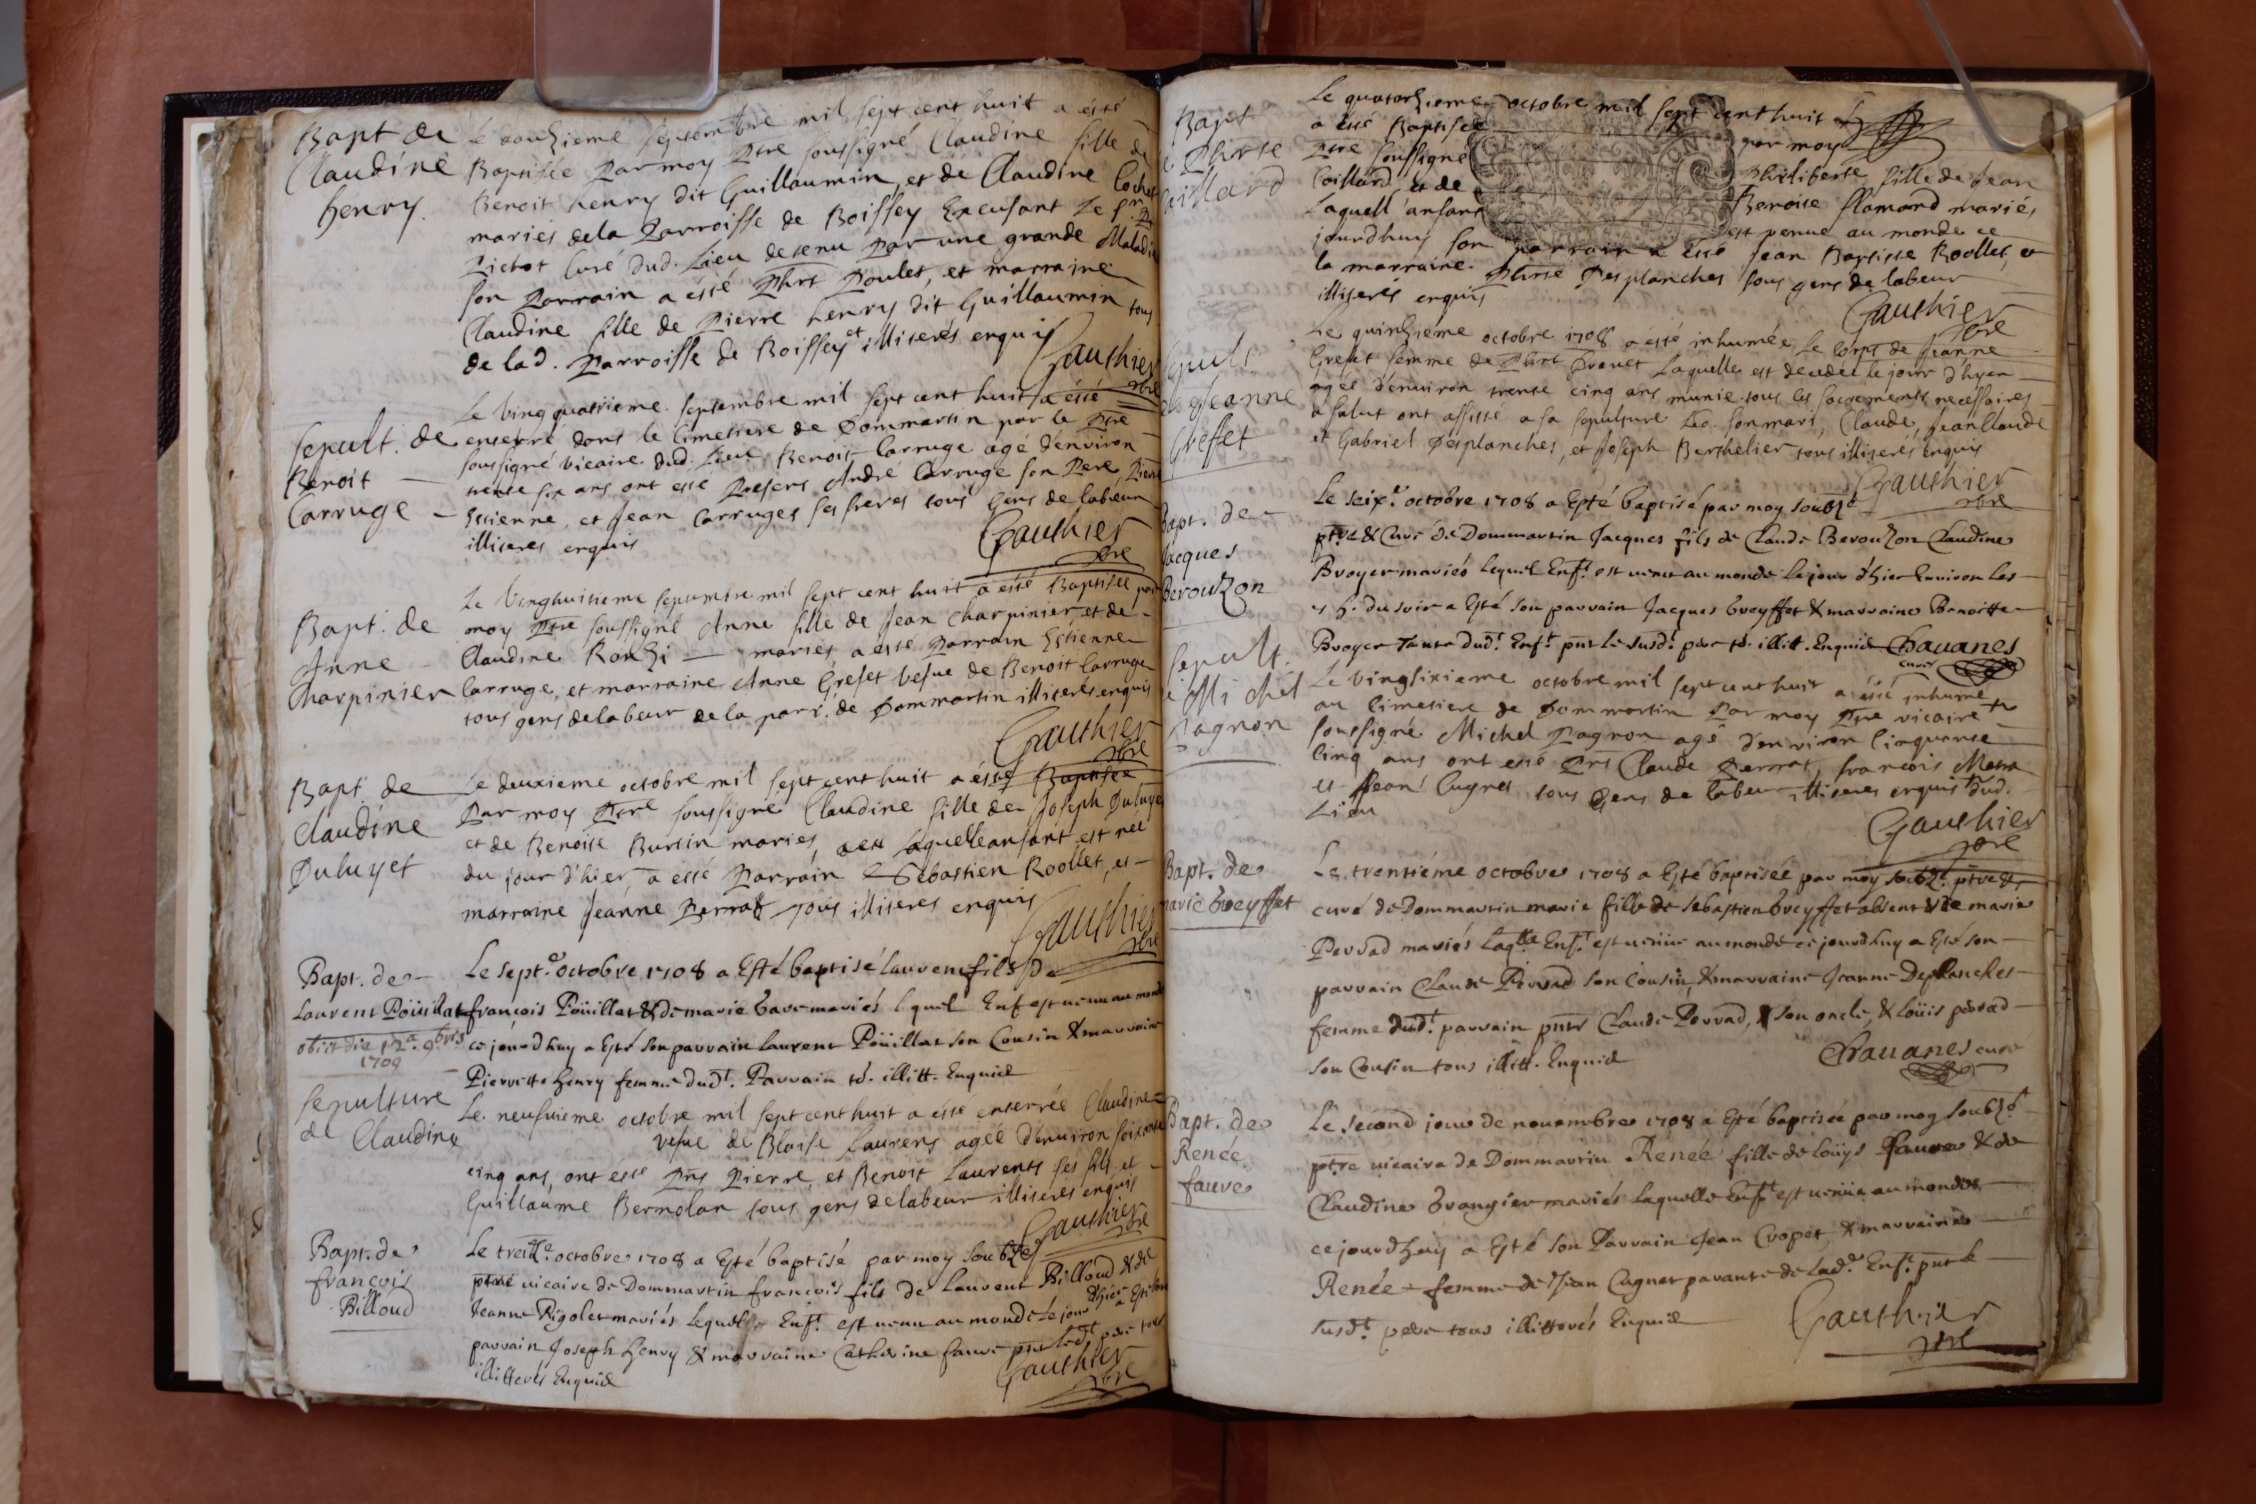 Bapt de
Claudine
henry.
Le douzieme septembre mil sept cent huit a esté
Baptisée Par moy Ptre soussigné Claudine fille de
Benoit henry dit Guillaumin, et de Claudine Cochet
mariés de la Parroisse de Boissey Excusant Le Sr
Pichot Curé dud. Lieu detenu Par une grande Maladie
son Parrain a esté Phrt Poulet, et marraine
Claudine fille de Pierre henry dit Guillaumin tous
de lad. Parroisse de Boissey et illiterés enquis
Gauthier
ptre
sepult. de
Benoit
Carruge
Le Vingquatrieme septembre mil sept cent huit a esté
enterré dans le Cimetiere de Dommartin par le Ptre
soussigné vicaire dud. Lieu Benoit Carruge agé d'environ
trente six ans ont esté Presens André Carruge son Pere, Pierre
Estienne, et Jean Carruges ses freres tous Gens de labeur
illiteres enquis
Gauthier
ptre
Bapt. de
Anne
Charpinier
Le Vinghuitieme septembre mil sept cent huit a esté Baptisée par
moy Ptre soussigné Anne fille de Jean Charpinier et de
Claudine Rouzi mariés a esté Parrain Estienne
Carruge, et marraine Anne Grefet vefue de Benoit Carruge
tous gens de labeur de la parr. de Dommartin illiterés enquis
Gauthier
ptre
Bapt. de
Claudine
Duluyet
Le deuxieme octobre mil sept cent huit a esté Baptisée
Par moy Ptre soussigné Claudine fille de Joseph Duluyet
et de Benoite Burtin mariés, laquelle anfant est née
du jour d'hier, a esté Parrain Sebastien Roollet, et
marraine Jeanne Perrat tous illiteres enquis
Gauthier
ptre
Bapt. de
Laurent Poüillat
obiit die 12a 9bris
1709
Le sept.e octobre 1708 a Esté baptisé laurent fils de
françois Poüillat & de marie baue mariés lequel Enf est uenu au monde
ce jourdhuy a Esté son parrain laurent Poüillat son Cousin & marraine
Pierrette henry femme dudt. Parrain ts. illitt. Enquis
sepulture
de Claudine
Le neufuieme octobre mil sept cent huit a esté enterrée Claudine
vefue de Blaise Laurens agée d'enuiron soixante
cinq ans, ont esté Pns Pierre, et Benoit Laurents ses fils et
Guillaume Bernolan tous gens de labeur illiteres enquis
Gauthier
ptre
Bapt. de
françois
Billoud
Le treiz.e octobre 1708 a Esté baptisé par moy soubzé
ptre uicaire de Dommartin françois fils de Laurent Billoud & de
Jeanne Rigolet mariés lequel Enft. est uenu au monde le jour d'hier a Esté son
parrain Joseph henry & marraine Catherine faure pnt ledt pere tous
illitterés Enquis
Gauthier
ptre
Bapt
e Phrte
aillard
Le quatorzieme octobre mil sept cent huit
a esté Baptisée par moy
Ptre soussigné Philiberte fille de Jean
Caillard et de Benoite flamand mariés
Laquell anfant est venue au monde ce
jourdhuy son parrain a esté Jean Baptiste Roollet, et
la marraine Phrte Desplanches tous gens de labeur
illiterés enquis
Gauthier
ptre
sepult
de Jeanne
Greffet
Le quinzieme octobre 1708 a esté inhumée Le Corps de Jeanne
Grefet femme de Phrt Prouet Laquelle est decedée le jour d'hyer
agée d'enuiron trente cinq ans munie tous les sacrements necessaires
a salut ont assisté a sa sepulture Led. son mari, Claude, Jean Claude
et Gabriel Desplanches, et Joseph Berthelier tous illiterés enquis
Gauthier
ptre
Bapt. de
Jacques
Berouzon
Le seiz.e octobre 1708 a Esté baptisé par moy soubzé
ptre & Curé de Dommartin Jacques fils de Claude Berouzon Claudine
Broyer mariés lequel Enft. est uenu au monde le jour d'hier Enuiron les
h. du soir a Esté son parrain Jacques breyffet & marraine Benoitte
Broyer tante dudt. Enft. pnt le susdt. pere ts. illitt. Enquis Chauanes
curé
sepult.
e Michel
Pagnon
Le Vingsixieme octobre mil sept cent huit a esté inhumé
au Cimetiere de Dommartin Par moy Ptre vicaire
soussigné Michel Pagnon agé d'environ Cinquante
cinq ans ont esté Pns Claude Perrat, françois Mora
et Jean Cugnet tous Gens de labeur illiteres enquis dud.
Lieu
Gauthier
ptre
Bapt. de
marie breyffet
Le trentiéme octobre 1708 a Esté baptisée par moy soubzé ptre &
curé de Dommartin marie fille de sebastien breyffet absent & de marie
Perrad mariés laqlle Enft. est uenüe au monde ce jourdhuy a Esté son
parrain Claude Perrad son Cousin, & marraine Jeanne Deplanches
femme dudt. parrain pnts Claude Perrad, son oncle, & loüis perrad
son Cousin tous illitt. Enquis
Chauanes curé
Bapt. de
Renée
faure
Le second jour de nouembre 1708 a Esté baptisée par moy soubzé
ptre uicaire de Dommartin Renée fille de loüys faure & de
Claudine brangier mariés laquelle Enft est uenüe au monde
ce jourdhuy a Esté son Parrain Jean Cropet & marraine
Renée femme de Jean Cagnet parante de ladte Enft. pnt le
susdt. pere tous illitterés Enquis
Gauthier
ptre